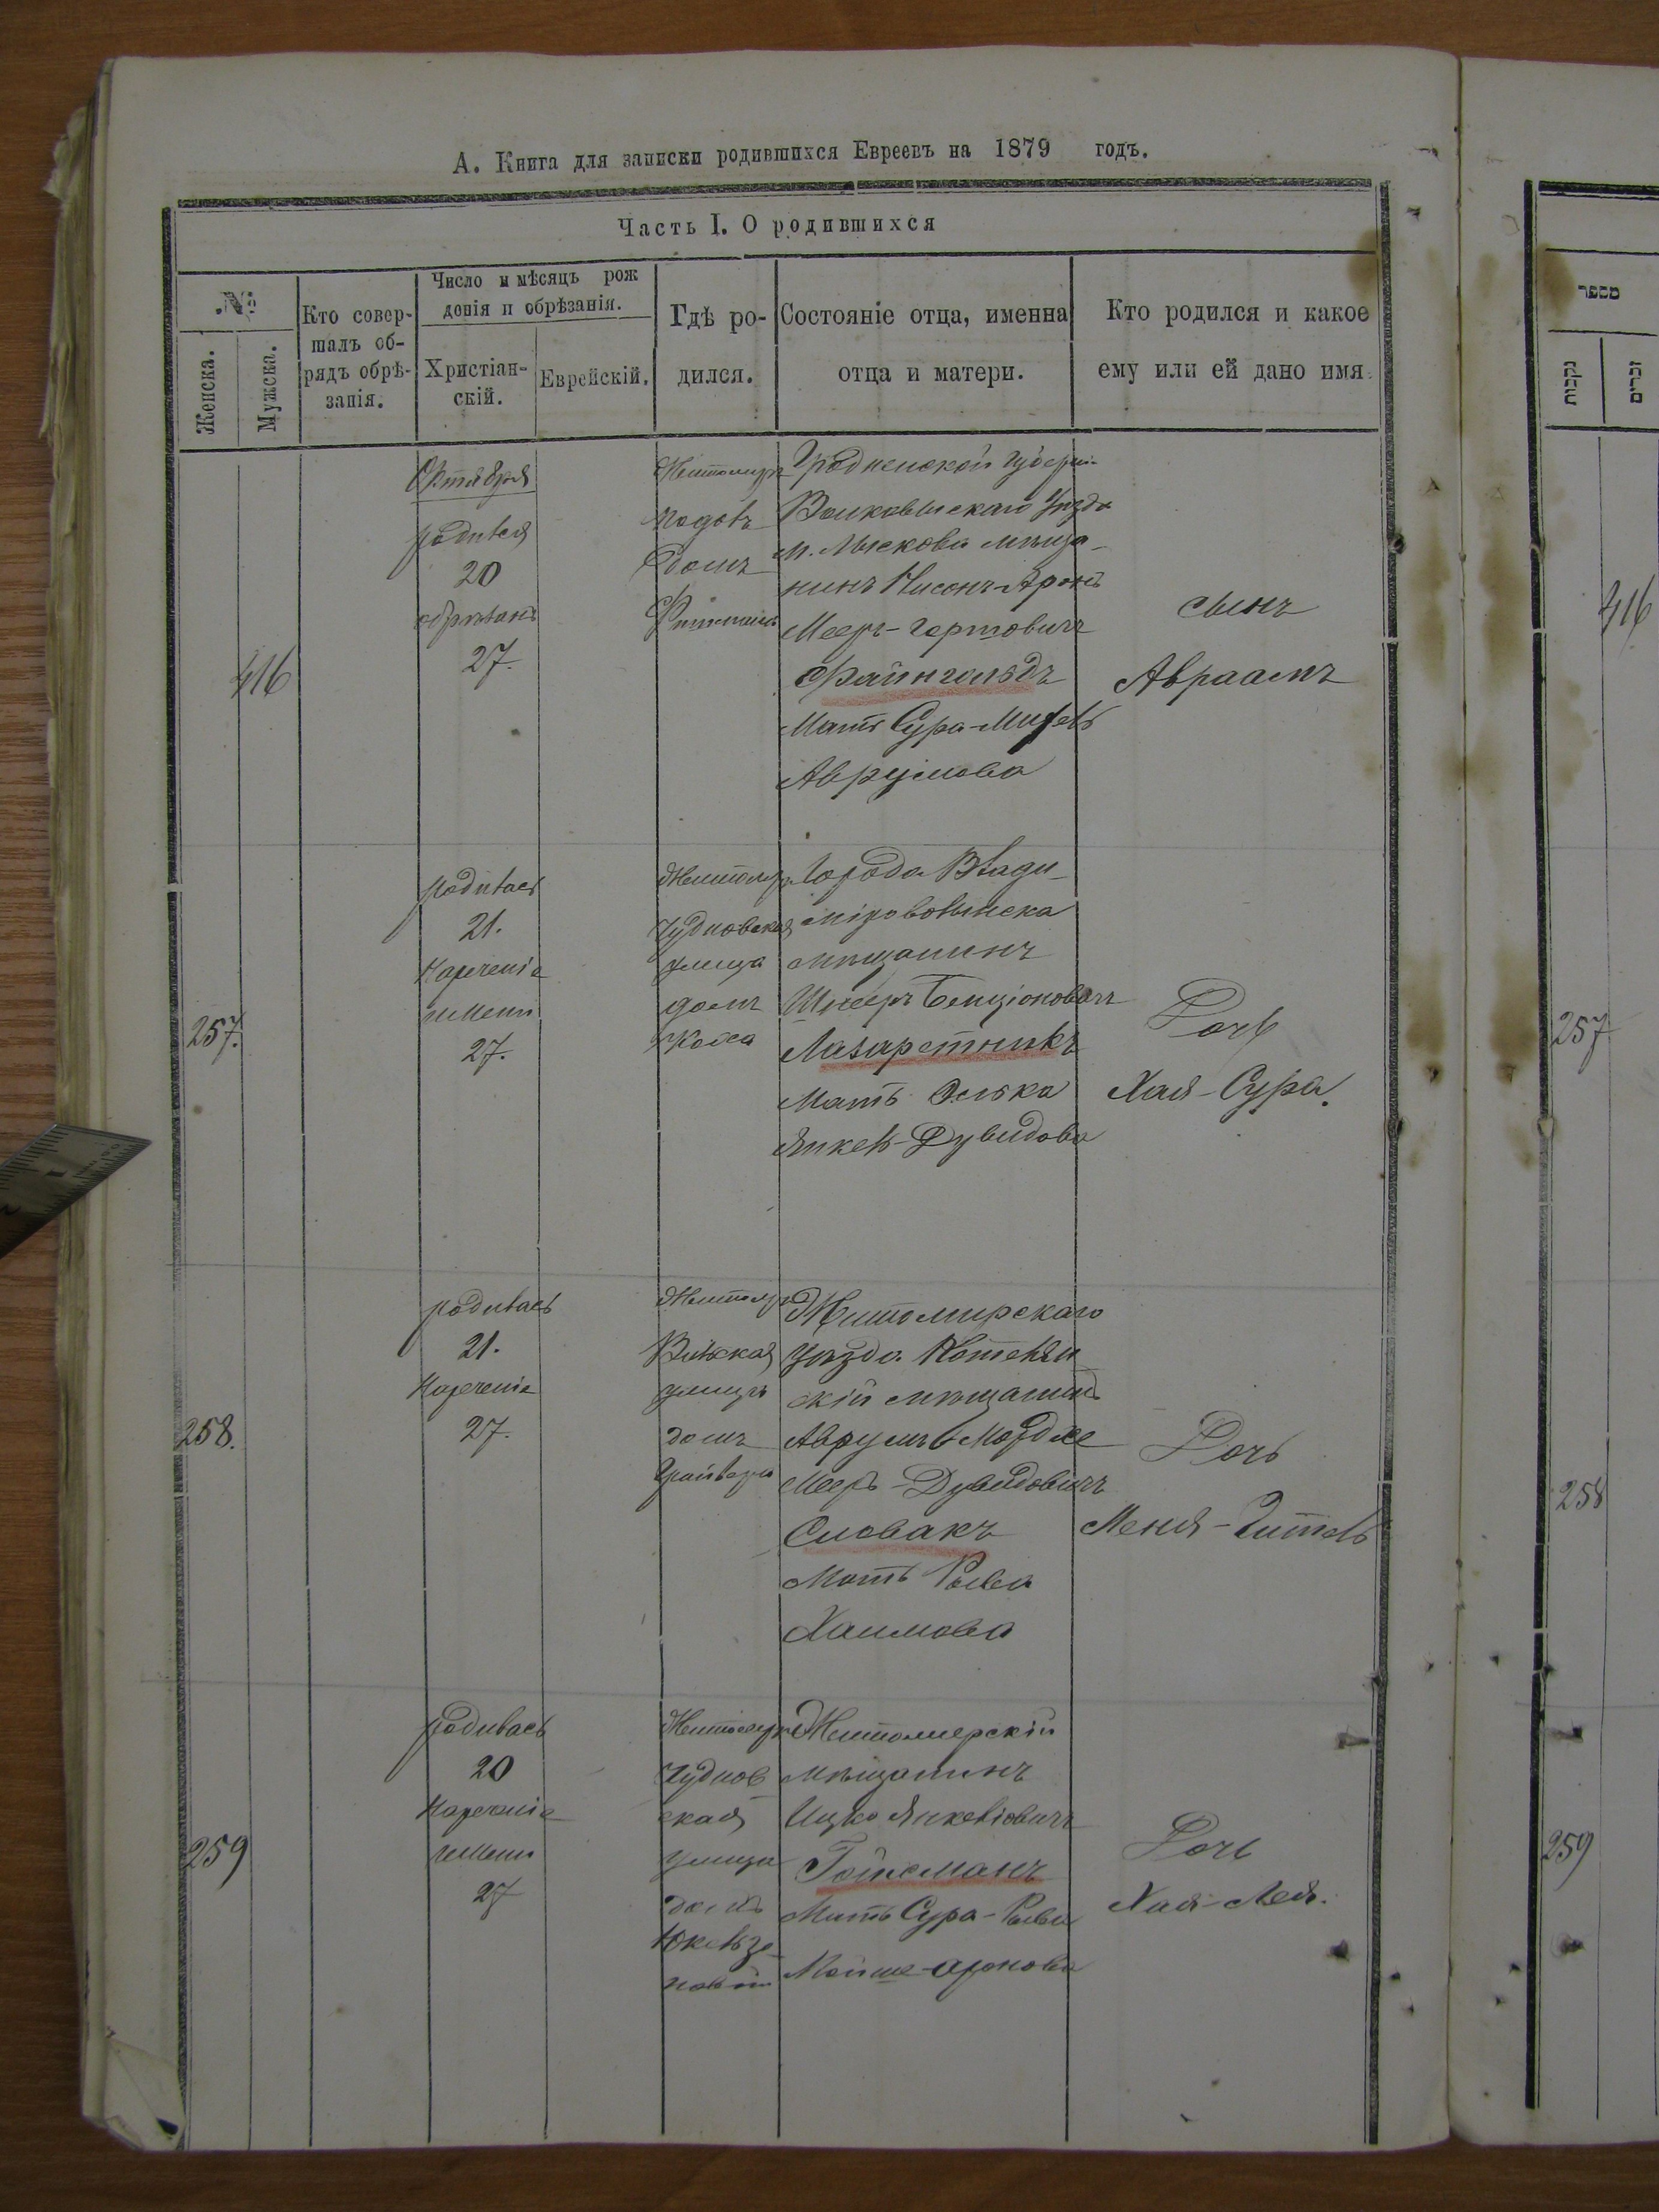 А. Книга для записки родившихся Евреевъ на 1879 годъ.
Часть I. О родившихся
№
Женска.
Мужска.
Кто совер-
шалъ об-
рядъ обрѣ-
занія.
Число и мѣсяцъ рож
денія и обрѣзанія.
Христіан-
скій.
Еврейскій.
Гдѣ ро-
дился.
Состояніе отца, именна
отца и матери.
Кто родился и какое
ему или ей дано имя.
416
Октября
родился
20
обрѣзанъ
27.
Житомиръ
домъ
Гродненской Губерніи
Волковыскаго Уѣзда
м. Лыскова мѣща-
нинъ Нисонъ-Аронъ
Мееръ-Гершовичъ
Файнгольдъ
Мать Сура-Михель
Аврумова
сынъ
Авраамъ
257.
родилась
21.
Нареченіе
имени
27.
Житомиръ
Чудновская
улица
домъ
Города Влади-
міроволынска
мѣщанинъ
Шнееръ Бенціоновичъ
Лазарстникъ
Мать Элька
Янкель-Дувидова
Дочь
Хая-Сура.
258.
родилась
21.
Нареченіе
27.
Житомиръ
Вильская
улица
домъ
Житомирскаго
уѣзда Котельн
скій мѣщанинъ
Аврумъ Мордхе
Мееръ-Дувидовичъ
Словакъ
Мать Рыва
Хаимова
Дочь
Меня-Гитель
259
родилась
20
Нареченіе
имени
27
Житомиръ
Чуднов
ская
улица
домъ
Житомирскій
мѣщанинъ
Ицко Янкеліовичъ
Гойхманъ
Мать Сура-Рыва
Мойше-Аронова
Дочь
Хая-Лея.
מספר
נקבות
זכרים
416
257
258
259